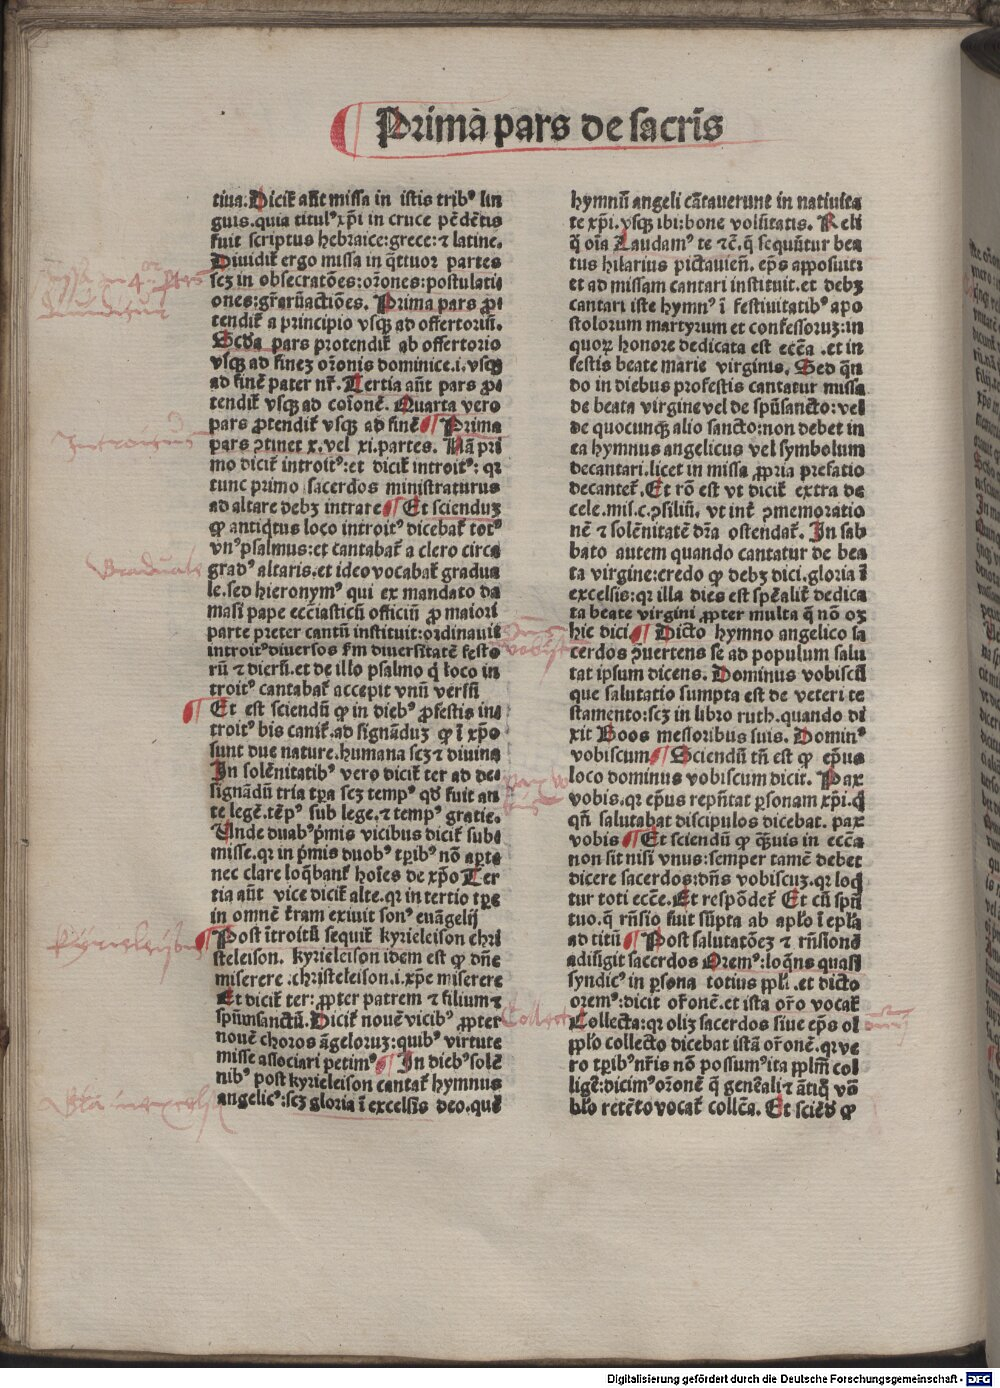 Primā pars de sacris
tiua. Dicit̄ aūt missa in istis tribꝰ lin
guis. quia titulꝰ xp̄i in cruce pēdētis
fuit scriptus hebraice: grece: ⁊ latine.
Diuidit̄ ergo missa in q̄ttuor partes
scꝫ in obsecratōes: orōnes: postulati
ones: gr̄arūactiōes. Prima pars ꝓ
tendit̄ a principio vsqꝫ ad offertoriū.
Scd̄a pars protendit̄ ab offertorio
vsqꝫ ad finez orōnis dominice .i. vsqꝫ
ad finē pater nr̄. Tertia aūt pars ꝓ
tendit̄ vsqꝫ ad coīonē. Quarta vero
pars ꝓtendit̄ vsqꝫ ad finē ¶ Prima
pars ꝯtinet x. vel xi. partes. Nā pri
mo dicit̄ introitꝰ: et dicit̄ introitꝰ: qꝛ
tunc primo sacerdos ministraturus
ad altare debꝫ intrare ¶ Et scienduꝫ
ꝙ antiq̇tus loco introitꝰ dicebat̄ totꝰ
vnꝰ psalmus: et cantabat̄ a clero circa
gradꝰ altaris. et ideo vocabat̄ gradua
le. sed hieronymꝰ qui ex mandato da
masi pape ecc̄iasticū officiū ꝓ maiori
parte preter cantū instituit: ordinauit
introitꝰ diuersos fm diuersitatē festo
rū ⁊ dierū. et de illo psalmo q̄ loco in
troitꝰ cantabat̄ accepit vnū versū
¶ Et est sciendū ꝙ in diebꝰ ꝓfestis in
troitꝰ bis canit̄. ad signāduꝫ ꝙ ī xp̄o
sunt due nature. humana scꝫ ⁊ diuina
In solēnitatibꝰ vero dicit̄ ter ad de
signādū tria tp̄a scꝫ tempꝰ qd̄ fuit an
te legē. tēpꝰ sub lege. ⁊ tempꝰ gratie.
Unde duabꝰ pͥmis vicibus dicit̄ sub
misse. qꝛ in pͥmis duobꝰ tp̄ibꝰ nō aꝑte
nec clare loq̄bant̄ hoīes de xp̄o Ter
tia aūt vice dicit̄ alte. qꝛ in tertio tp̄e
in omnē t̄ram exiuit sonꝰ euāgelij
¶ Post ītroitū sequit̄ kyrieleison chri
steleison. kyrieleison idem est ꝙ dn̄e
miserere . christeleison .i. xp̄e miserere
Et dicit̄ ter: ꝓpter patrem ⁊ filium ⁊
spūmsanctū. Dicit̄ nouē vicibꝰ ꝓpter
nouē choros āgeloruꝫ: quibꝰ virtute
misse associari petimꝰ ¶ In diebꝰ solē
nibꝰ post kyrieleison cantat̄ hymnus
angelicꝰ: scꝫ gloria ī excelsis deo. quē
hymnū angeli cātauerunt in natiuita
te xp̄i. vsqꝫ ibi: bone volūtatis. Reli
q̄ oīa Laudamꝰ te ⁊c̄. q̄ sequūtur bea
tus hilarius pictauien̄. ep̄s apposuit:
et ad missam cantari instituit. et debꝫ
cantari iste hymnꝰ ī festiuitatibꝰ apo
stolorum martyrum et confessoruꝫ: in
quoꝝ honore dedicata est ecc̄a . et in
festis beate marie virginis. Sed q̄n
do in diebus profestis cantatur missa
de beata virgine vel de spūsancto: vel
de quocunqꝫ alio sancto: non debet in
ea hymnus angelicus vel symbolum
decantari. licet in missa ꝓpria prefatio
decantet̄. Et rō est vt dicit̄ extra de
cele. mis. c. ꝯsiliū. vt int̄ ꝯmemoratio
nē ⁊ solēnitatē dr̄a ostendat̄. In sab
bato autem quando cantatur de bea
ta virgine: credo ꝙ debꝫ dici. gloria ī
excelsis: qꝛ illa dies est spēalit̄ dedica
ta beate virgini ꝓpter multa q̄ nō oꝫ
hic dici ¶ Dicto hymno angelico sa
cerdos ꝯuertens se ad populum salu
tat ipsum dicens. Dominus vobiscū
que salutatio sumpta est de veteri te
stamento: scꝫ in libro ruth. quando di
xit Boos messoribus suis. Dominꝰ
vobiscum ¶ Sciendū tn̄ est ꝙ ep̄us
loco dominus vobiscum dicit. Pax
vobis. qꝛ ep̄us repn̄tat ꝑsonam xp̄i. q̄
qn̄ salutabat discipulos dicebat. pax
vobis ¶ Et sciendū ꝙ q̄uis in ecc̄a
non sit nisi vnus: semper tamē debet
dicere sacerdos: dn̄s vobiscuꝫ. qꝛ loq̄
tur toti ecc̄e. Et respōdet̄ Et cū spū
tuo. q̄ rn̄sio fuit sūpta ab apl̄o ī epl̄a
ad titū ¶ Post salutatōeꝫ ⁊ rn̄sionē
adiūgit sacerdos Oremꝰ: loq̄ns quasi
syndicꝰ in ꝑsona totius ppl̄i . et dicto
oremꝰ: dicit or̄onē. et ista or̄o vocat̄
Collecta: qꝛ oliꝫ sacerdos siue ep̄s ol
ppl̄o collecto dicebat istā or̄onē. qꝛ ve
ro tp̄ibꝰ nr̄is nō possumꝰ ita ppl̄m col
ligē: dicimꝰ orōnē q̄ genēali ⁊ ātiq̄ vo
bl̄o retēto vocat̄ collc̄a. Et sciēd̄ ꝙ
Introitus
Graduale
Kyrieleison
Gl̄a in excelsis
Dominus
vobiscum
Pax vo
bis
Collecta
Digitalisierung gefördert durch die Deutsche Forschungsgemeinschaft - DFG